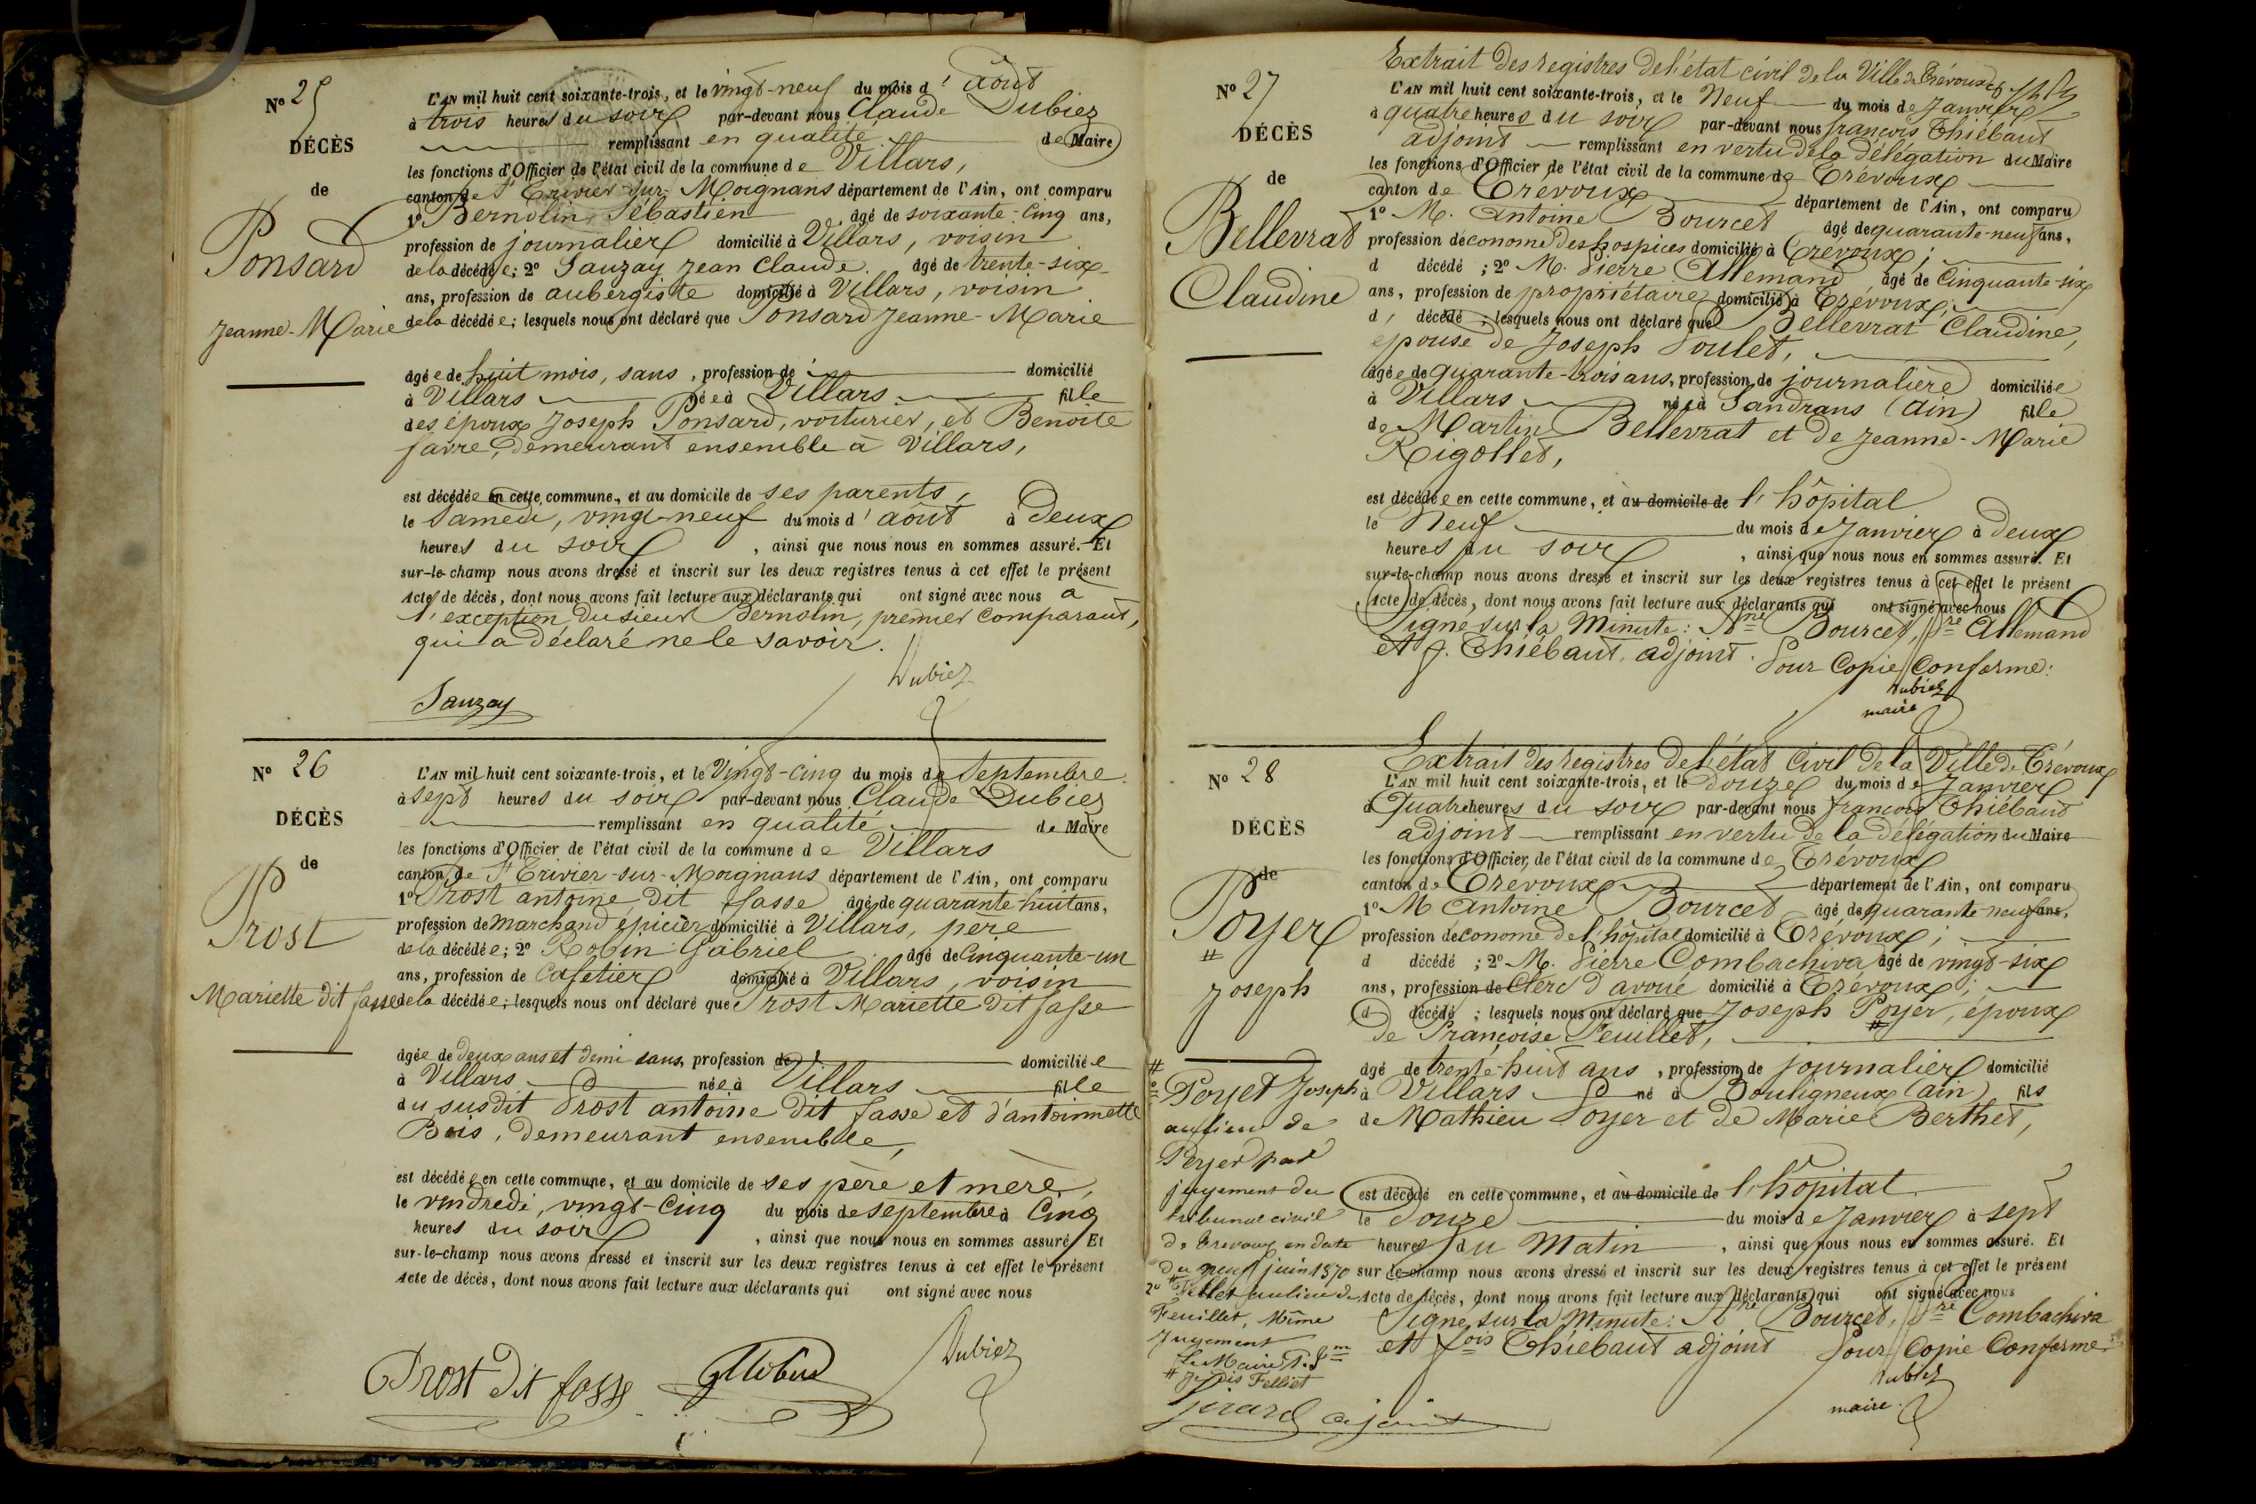 Nº 25
DÉCÈS
de
Ponsard
Jeanne-Marie
L'AN mil huit cent soixante-trois, et le vingt-neuf du mois d'août
à trois heures du soir par-devant nous Claude Dubiez
remplissant en qualité de Maire
les fonctions d'Officier de l'état civil de la commune de Villars,
canton de St Trivier-sur-Moignans département de l'Ain, ont comparu
1º Bernolin, Sébastien âgé de soixante-cinq ans,
profession de journalier domicilié à Villars, voisin
de la décédée; 2º Sauzay Jean Claude âgé de trente-six
ans, profession de aubergiste domicilié à Villars, voisin
de la décédée; lesquels nous ont déclaré que Ponsard Jeanne-Marie
âgée de huit mois, sans, profession de domicilié
à Villars née à Villars fille
des époux Joseph Ponsard, voiturier, et Benoite
favre, demeurant ensemble à Villars,
est décédée en cette commune, et au domicile de ses parents,
le Samedi, vingt-neuf du mois d'août à Deux
heures du soir, ainsi que nous nous en sommes assuré. Et
sur-le-champ nous avons dressé et inscrit sur les deux registres tenus à cet effet le présent
Acte de décès, dont nous avons fait lecture aux déclarants qui ont signé avec nous a
l'exception du sieur Bernolin, premier comparant,
qui a déclaré ne le savoir.
Dubiez
Sauzay
Nº 26
DÉCÈS
de
Prost
Mariette dit fasse
L'AN mil huit cent soixante-trois, et le Vingt-cinq du mois de Septembre
à sept heures du soir par-devant nous Claude Dubiez
remplissant en qualité de Maire
les fonctions d'Officier de l'état civil de la commune de Villars
canton de St Trivier-sur-Moignans département de l'Ain, ont comparu
1º Prost antoine dit fasse âgé de quarante-huit ans,
profession de marchand épicier domicilié à Villars, père
de la décédée; 2º Robin Gabriel âgé de cinquante-un
ans, profession de Cafetier domicilié à Villars, voisin
de la décédée; lesquels nous ont déclaré que Prost Mariette dit fasse
âgée de deux ans et demi sans, profession de domiciliée
à Villars née à Villars fille
du susdit Prost antoine dit fasse et d'antoinnette
Bas, demeurant ensemble,
est décédée en cette commune, et au domicile de ses père et mère,
le vendredi, vingt-cinq du mois de septembre à Cinq
heures du soir, ainsi que nous nous en sommes assuré. Et
sur-le-champ nous avons dressé et inscrit sur les deux registres tenus à cet effet le présent
Acte de décès, dont nous avons fait lecture aux déclarants qui ont signé avec nous
Dubiez
Prost dit fasse
Nº 27
DÉCÈS
de
Bellevrat
Claudine
Extrait des registres de l'état civil de la Ville de Trévoux
L'AN mil huit cent soixante-trois, et le Neuf du mois de Janvier
à quatre heures du soir par-devant nous françois Thiébaut
adjoint remplissant en vertu de la délégation du Maire
les fonctions d'Officier de l'état civil de la commune de Trévoux
canton de Trévoux département de l'Ain, ont comparu
1º M. Antoine Bourcet âgé de quarante-neuf ans,
profession d'économe des hospices domicilié à Trévoux;
d décédé; 2º M. Pierre Allemand âgé de Cinquante-six
ans, profession de propriétaire domicilié à Trévoux,
d décédé; lesquels nous ont déclaré que Bellevrat Claudine,
épouse de Joseph Poulet,
âgée de quarante-trois ans, profession de journalière domiciliée
à Villars née à Sandrans (Ain) fille
de Martin Bellevrat et de Jeanne-Marie
Rigollet,
est décédée en cette commune, et au domicile de l'hôpital
le Neuf du mois de Janvier à deux
heures du soir, ainsi que nous nous en sommes assuré. Et
sur-le-champ nous avons dressé et inscrit sur les deux registres tenus à cet effet le présent
Acte de décès, dont nous avons fait lecture aux déclarants qui ont signé avec nous
Signé sur la Minute: Ane Bourcet, Pre Allemand
et f. Thiébaut, adjoint. Pour Copie Conforme:
Dubiez
maire
Nº 28
DÉCÈS
de
Poyer
#
Joseph
Extrait des registres de l'état civil de la Ville de Trévoux
L'AN mil huit cent soixante-trois, et le douze du mois de Janvier
à Quatre heures du soir par-devant nous françois Thiébaud
adjoint remplissant en vertu de la délégation du Maire
les fonctions d'Officier de l'état civil de la commune de Trévoux
canton de Trévoux département de l'Ain, ont comparu
1º M Antoine Bourcet âgé de quarante-neuf ans,
profession d'économe de l'hôpital domicilié à Trévoux;
d décédé; 2º M. Pierre Combachiva âgé de vingt-six
ans, profession de Clerc d'avoué domicilié à Trévoux;
d décédé; lesquels nous ont déclaré que Joseph Poyer, époux
#
de Françoise Feuillet,
âgé de trente-huit ans, profession de journalier domicilié
à Villars né à Bouligneux (ain) fils
de Mathieu Poyer et de Marie Berthet,
est décédé en cette commune, et au domicile de l'hôpital
le douze du mois de Janvier à sept
heures du Matin, ainsi que nous nous en sommes assuré. Et
sur-le-champ nous avons dressé et inscrit sur les deux registres tenus à cet effet le présent
Acte de décès, dont nous avons fait lecture aux déclarants qui ont signé avec nous
Signé sur la Minute: Ane Bourcet, Pre Combachiva
et fois Thiébaut adjoint Pour Copie Conforme.
Dubiez
maire.
#
1º Poyet Joseph
au lieu de
Poyer par
jugement du
tribunal civil
de Trevoux en date
du neuf juin 1870
2º Felliet au lieu de
Feuillet, Même
Jugement
Le Maire
# Je dis Felliet
Girard adjoint